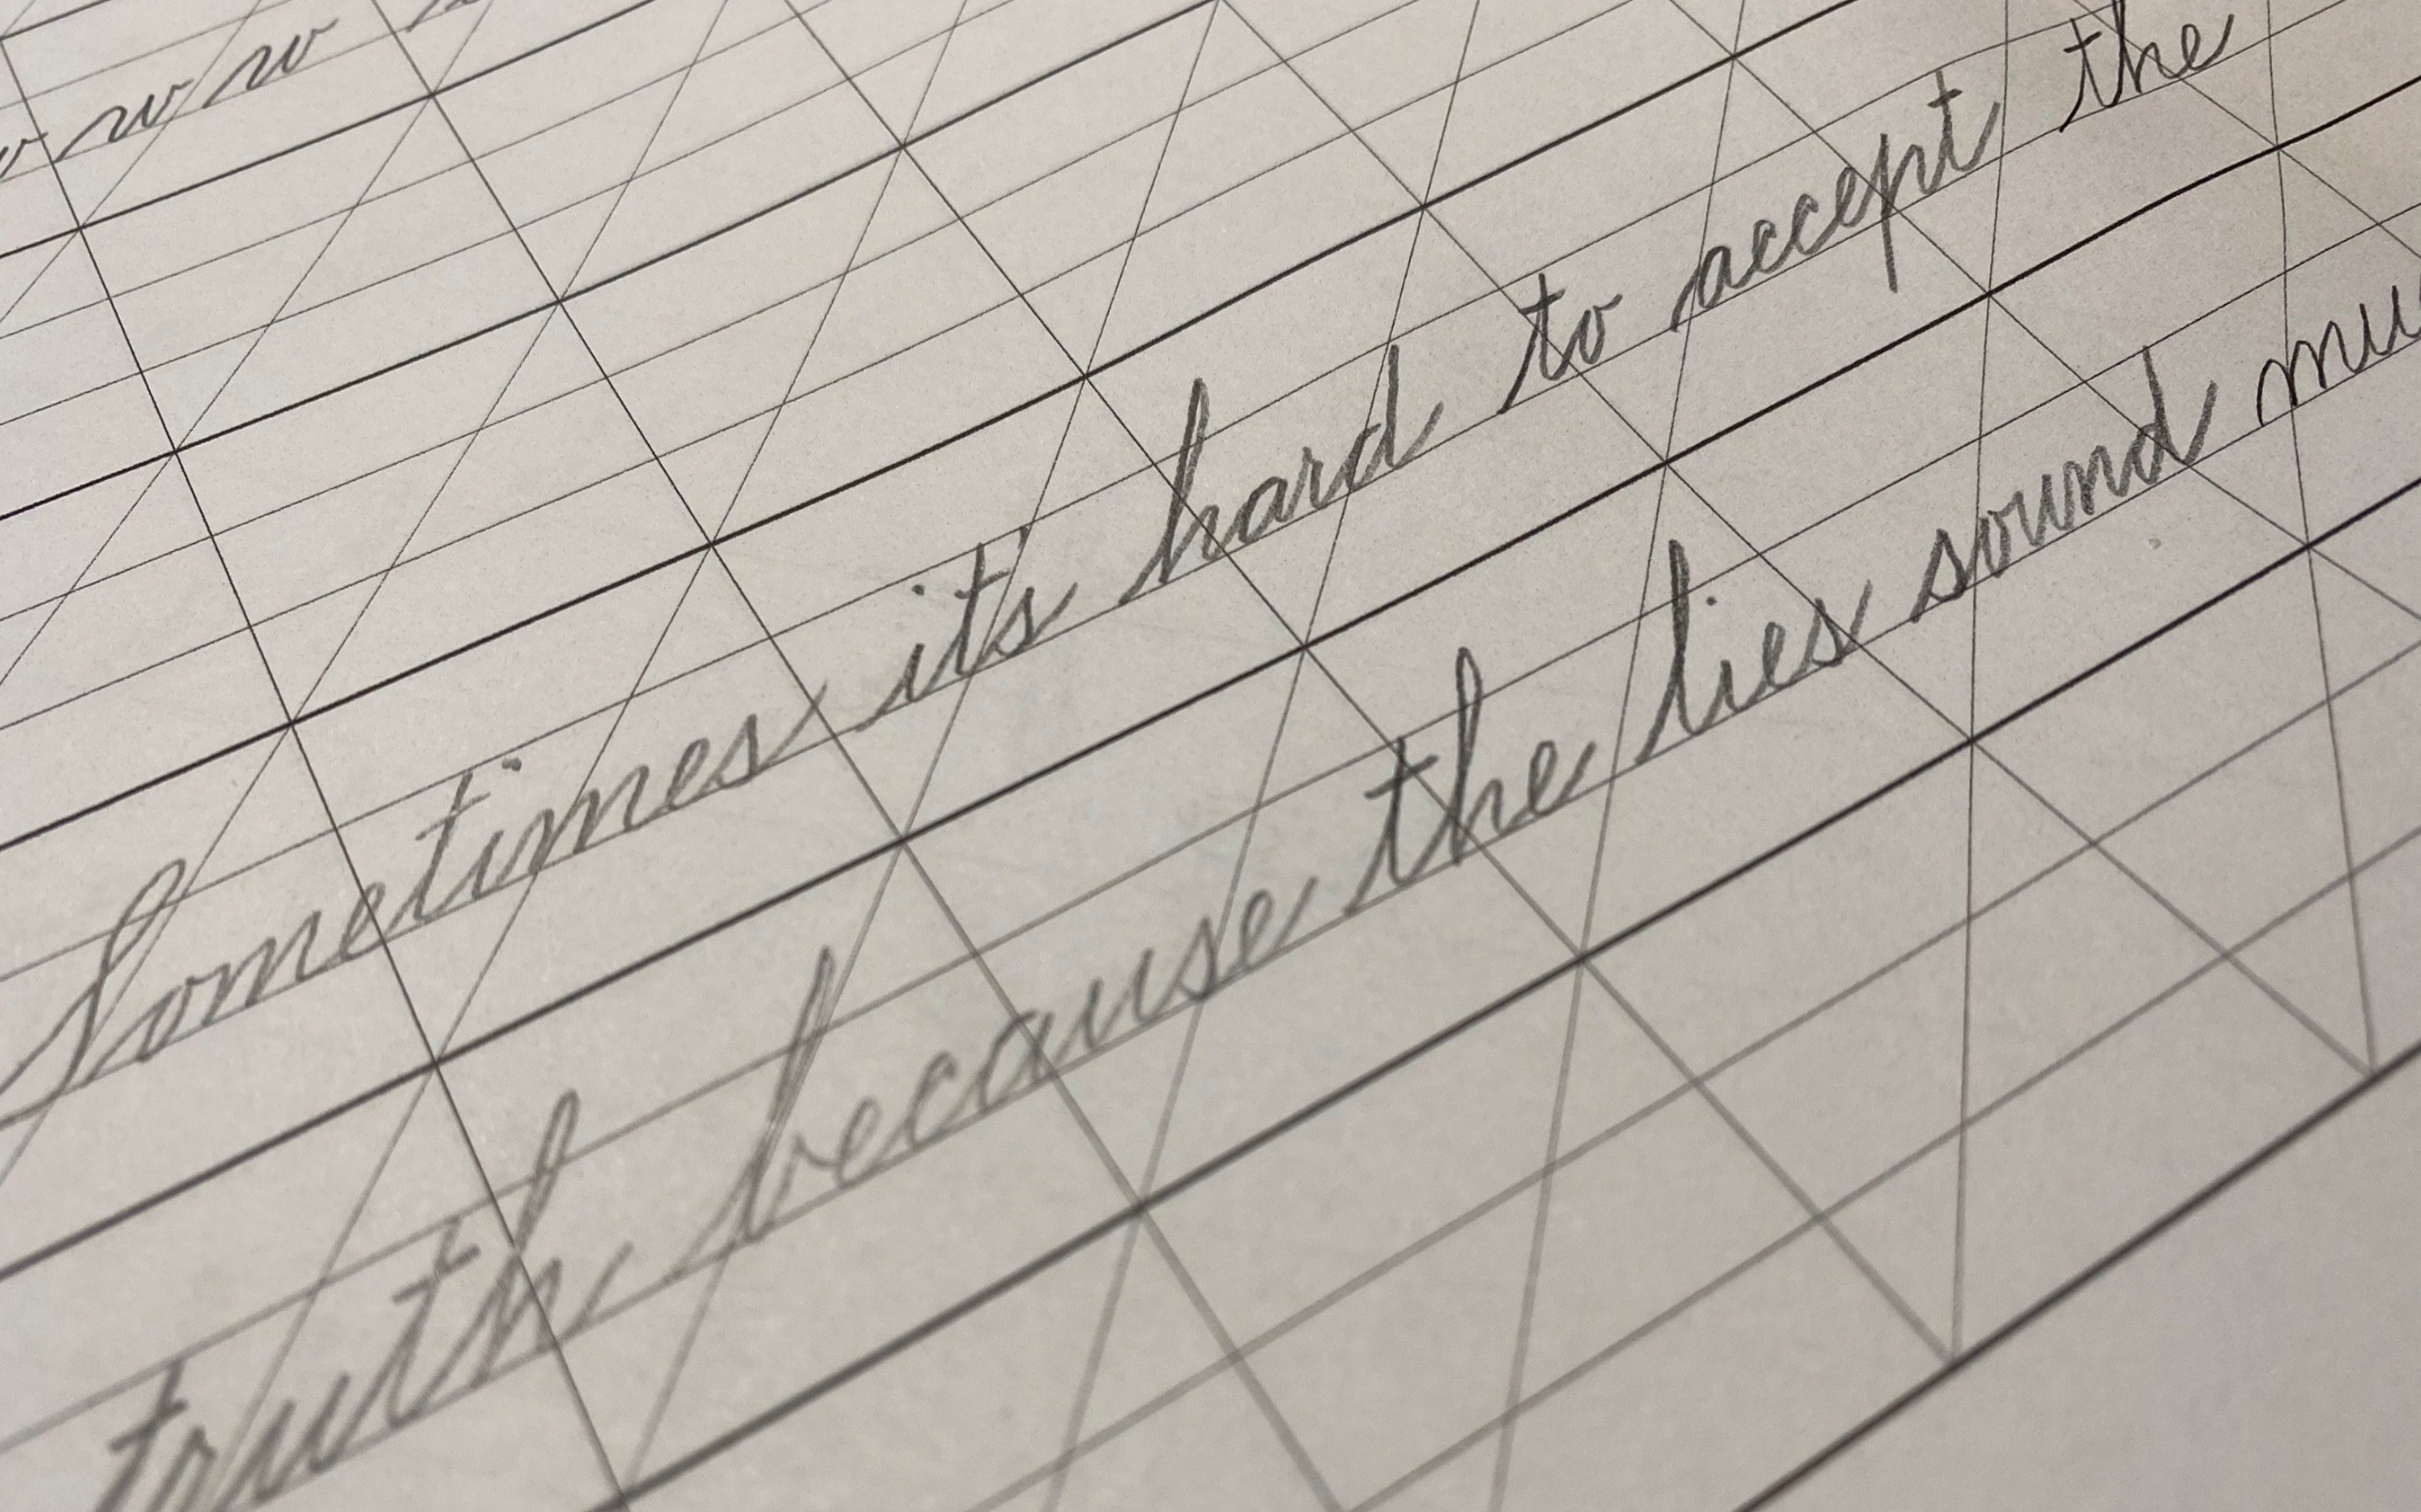 w w
Sometimes it's hard to accept the
truth because the lies sound